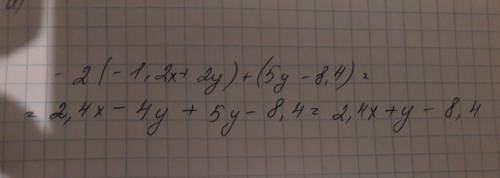 - 2 (-1,2x+ 2y) + (5y - 8,4) =
= 2,4x - 4y + 5y - 8,4 = 2,4x + y - 8,4